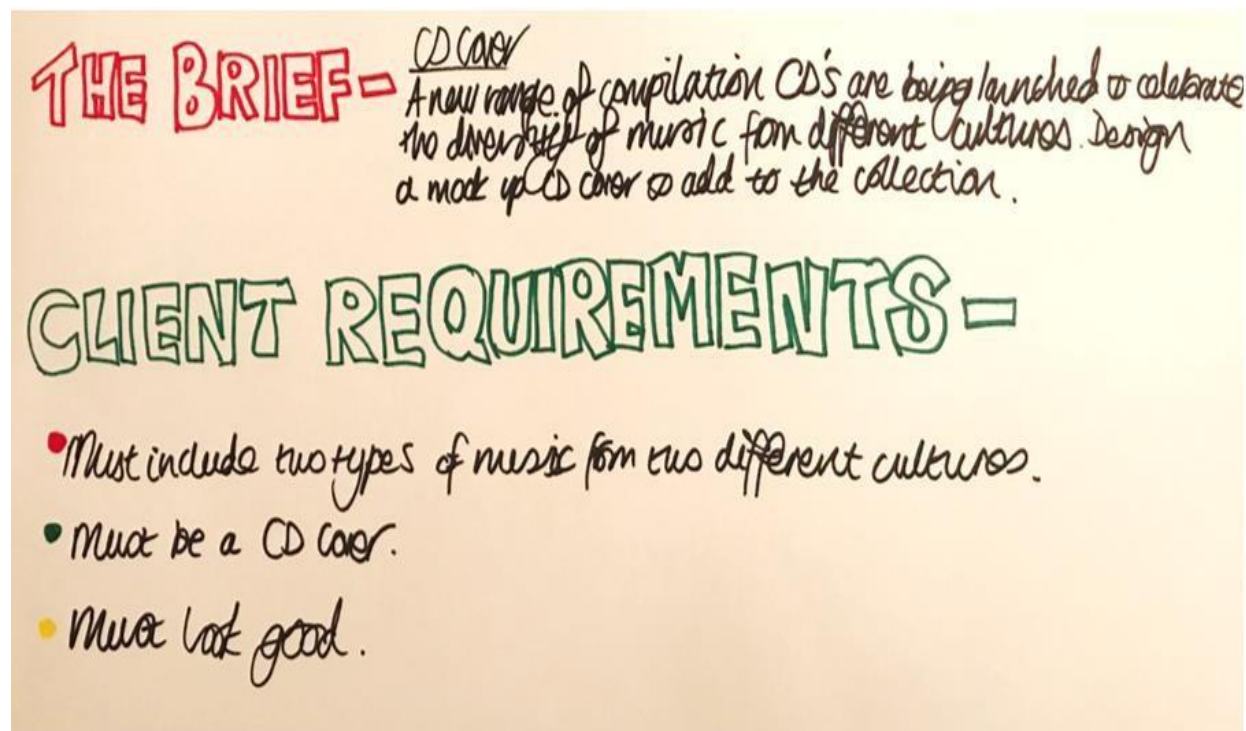 THE BRIEF-
CD Cover
A new range of compilation CD's are being launched to celebrate
the diversity of music from different cultures. Design
a mock up CD cover to add to the collection.
CLIENT REQUIREMENTS-
• Must include two types of music from two different cultures.
• Must be a CD Cover.
• Must look good.